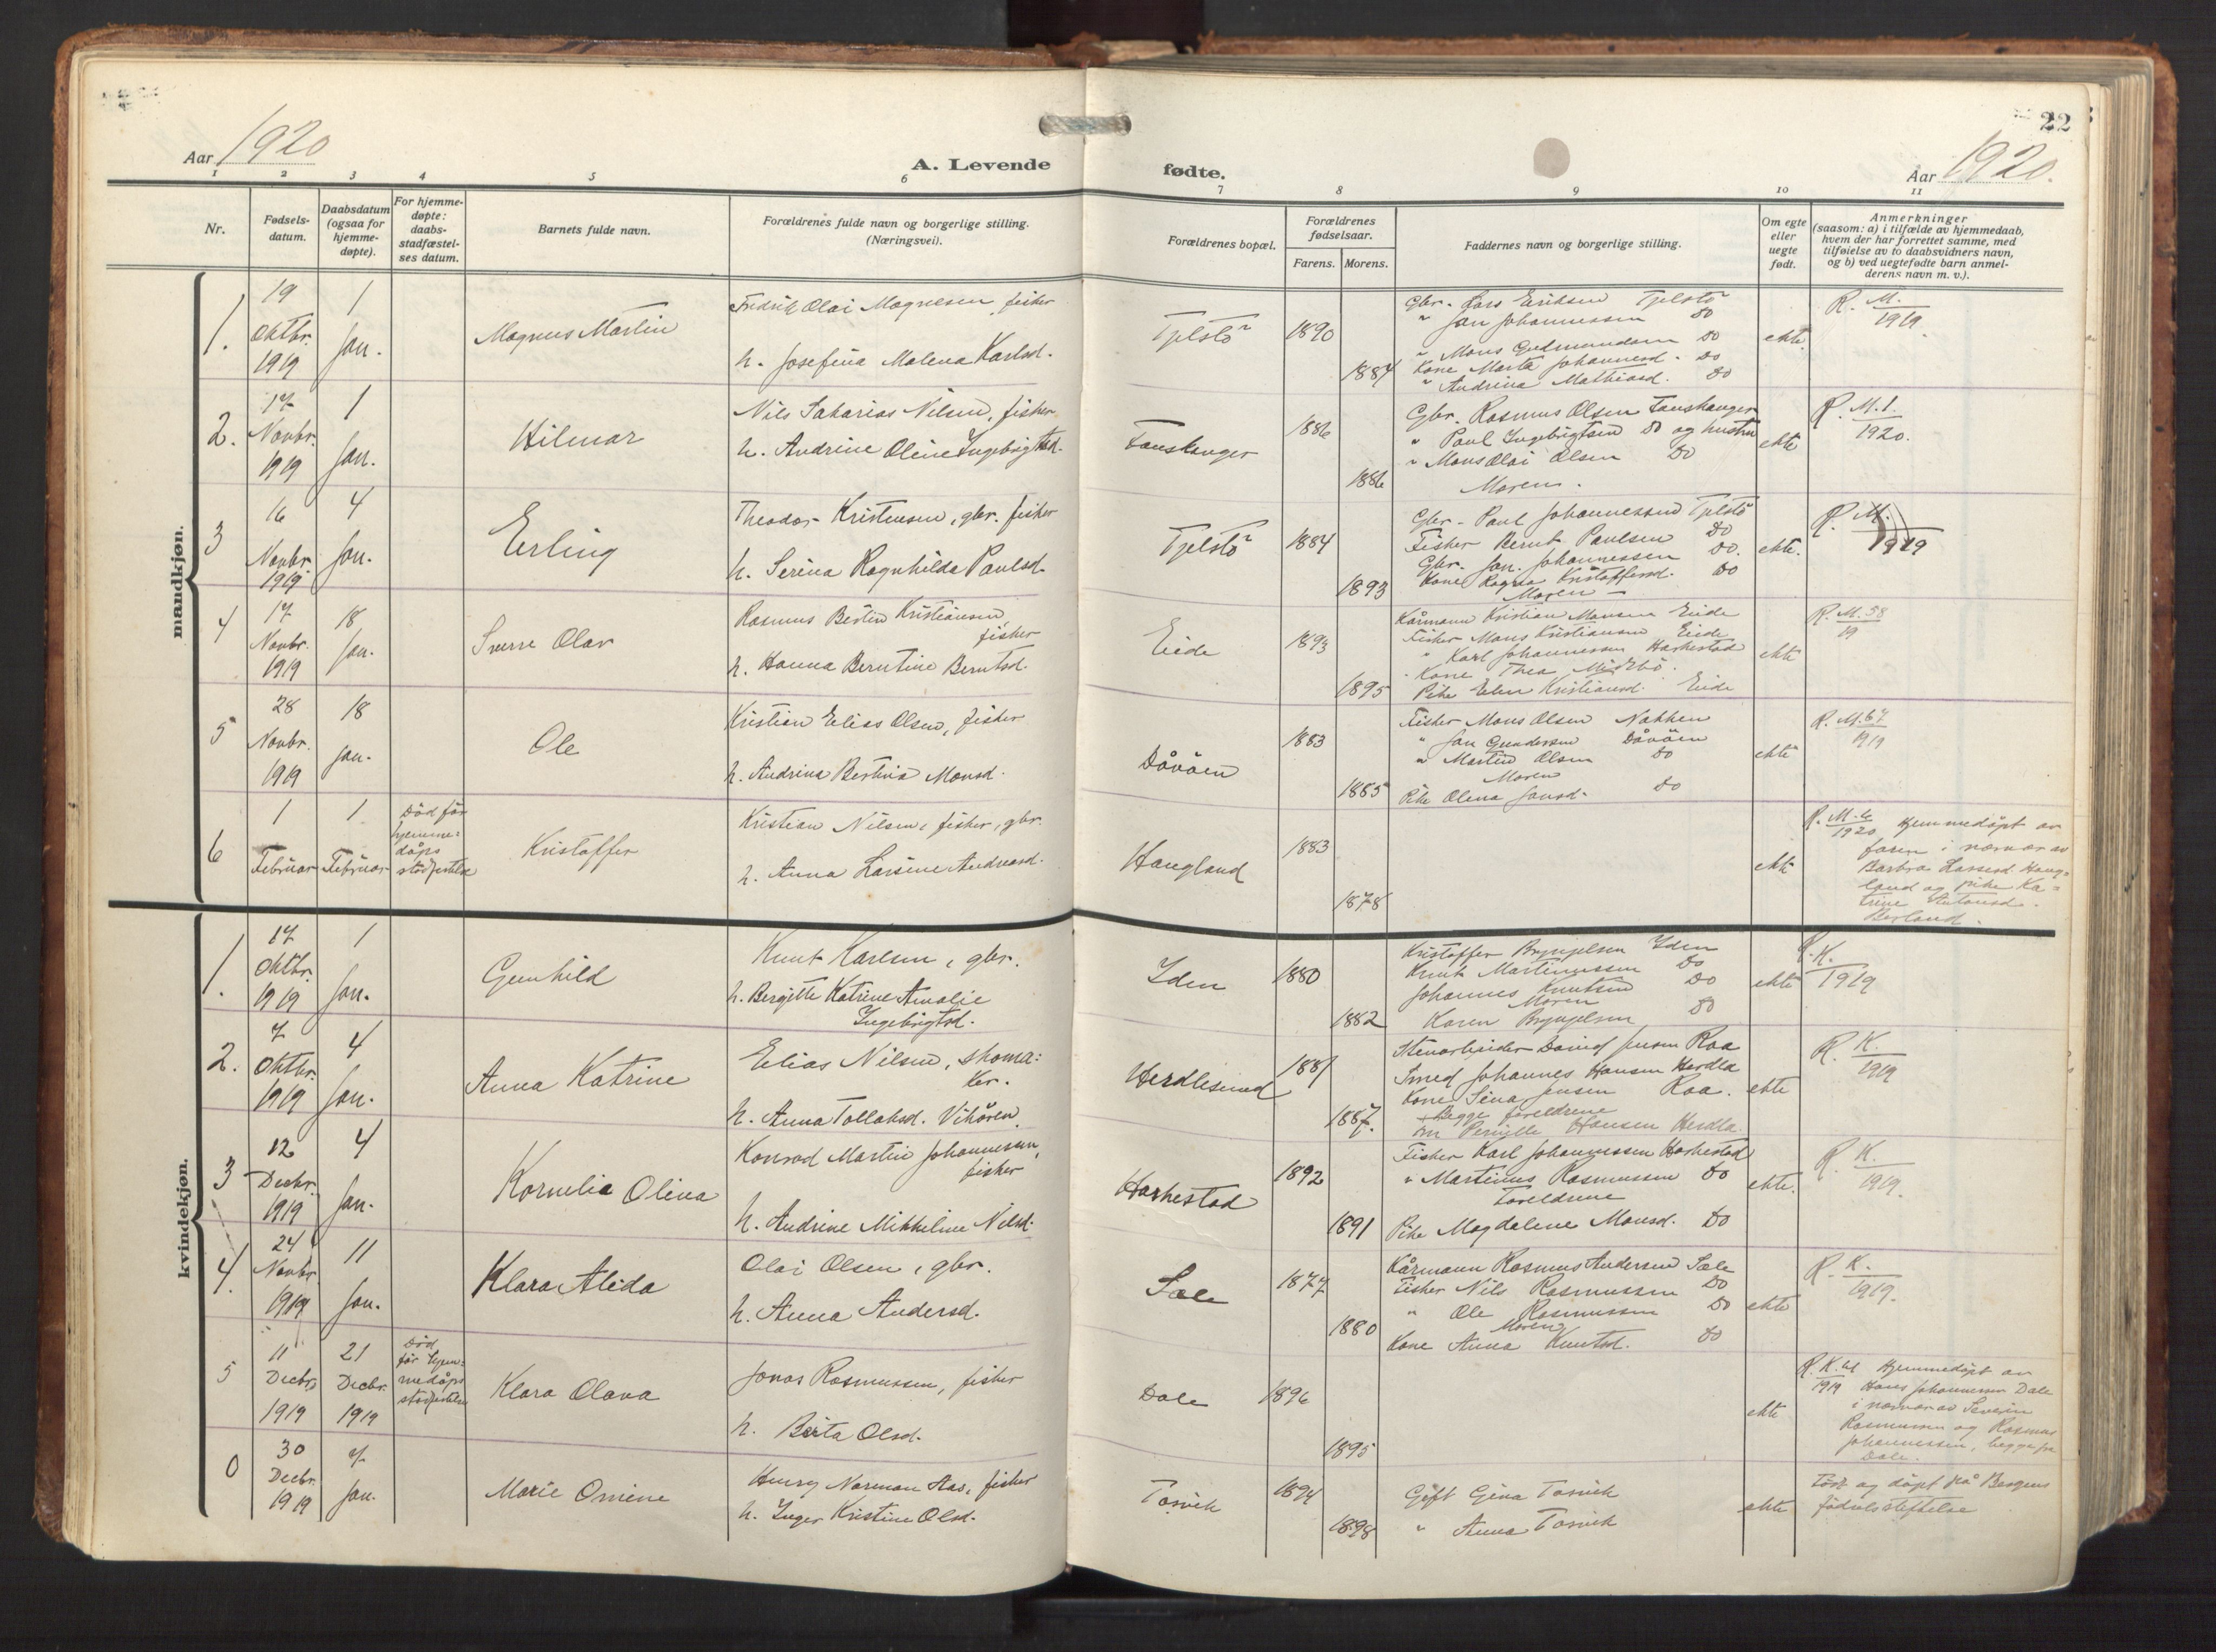 22
Aar 1920
A. Levende fødte.
Aar 1920.
1 2 3 4 5 6 7 8 9 10 11
Nr.
Fødsels-
datum.
Daabsdatum
(ogsaa for
hjemme-
døpte).
For hjemme-
døpte:
daabs-
stadfæstel-
ses datum.
Barnets fulde navn.
Forældrenes fulde navn og borgerlige stilling.
(Næringsvei).
Forældrenes bopæl.
Forældrenes
fødselsaar.
Farens. Morens.
Faddernes navn og borgerlige stilling.
Om egte
eller
uegte
født.
Anmerkninger
(saasom: a) i tilfælde av hjemmedaab,
hvem der har forrettet samme, med
tilføielse av to daabsvidners navn,
og b) ved uegtefødte barn anmel-
derens navn m. v.).
mandkjøn.
1.
19
Oktbr.
1919
1
Jan.
Magnus Martin
Fredrik Olai Magnesen, fisker
h. Josefina Malena Karlsd.
Tjelstö
1890
1884
Gbr. Lars Eriksen Tjelstö
" Jan Johannessen Do
" Mons Gudmundsen Do
Kone Marta Johannesd. Do
" Andrina Mathiasd. Do
ekte.
R. M.
1919
2.
17
Novbr.
1919
1
Jan.
Hilmar
Nils Sakarias Nilsen, fisker
h. Andrine Oline Ingebrigtsd.
Fauskanger
1886
1886
Gbr. Rasmus Olsen Fauskanger
" Paul Ingebrigtsen Do og hustru
" Mons Olai Olsen Do
Moren.
ekte
R. M.1.
1920.
3
16
Novbr.
1919
4
Jan.
Erling
Theodor Kristensen, gbr. fisker
h. Serina Ragnhilda Paulsd.
Tjelstö
1884
1893
Gbr. Paul Johannessen Tjelstö
Fisker Bernt Paulsen Do
Gbr. Jan. Johannessen Do.
Kone Ragna Kristoffersd. Do
Moren
ekte.
R. M.
1919
4
17
Novbr.
1919
18
Jan.
Sverre Olav
Rasmus Bertin Kristiansen,
fisker
h. Hanna Berntine Berntsd.
Eide
1893
1895
Kårmann Kristian Monsen Eide
Fisker Mons Kristiansen Eide
" Karl Johannessen Harkestad
Kone Thea Midtbö.
Pike Elen Kristiansd. Eide
ekte
R. M. 58
19
5
28
Novbr.
1919
18
Jan.
Ole
Kristian Elias Olsen, fisker
h. Andrina Bertina Monsd.
Dåvöen
1883
1885
Fisker Mons Olsen Nakken
" Jan Gundersen Dåvöen
" Martin Olsen Do
Moren
Pike Olena Jansd. Do
ekte
R. M. 67
1919
6
1
Februar
1
Februar
Död för
hjemme-
dåps
Kristoffer
Kristian Nilsen, fisker, gbr.
h. Anna Larsine Andreasd.
Haugland
1883
1878
ekte
R. M. 6
1920 Hjemmedöpt av
faren i nærvær av
Barbra Larsesd. Haug-
land og pike Ka-
trine Antonsd.
Berland.
kvindekjøn.
1.
17
Oktbr.
1919
1
Jan.
Gunhild
Knut Karlsen, gbr.
h. Bergitte Katrine Amalie
Ingebrigtsd.
Iden
1880
1882
Kristoffer Brynjelsen Iden
Knut Martinussen Do
Johannes Knutsen Do
Moren
Karen Brynjelsen Do
ekte
R. K.
1919
2.
7
Oktbr.
1919
4
Jan.
Anna Katrine
Elias Nilsen, skoma-
ker.
h. Anna Tollaksd. Viksören
Herdlesund
1881
1887.
Stenarbeider David Jensen Raa
Smed Johannes Hansen Herdla
Kone Sina Jensen Raa.
Begge foreldrene
Pernille Hansen Herdla
ekte
R. K.
1919
3
12
Decbr.
1919
4
Jan.
Kornelia Olina
Konrad Martin Johannesen,
fisker
h. Andrine Mikkeline Nilsd.
Harkestad
1892
1891
Fisker Karl Johannessen Harkestad
" Martinus Rasmussen Do
Foreldrene
Pike Magdalene Monsd. Do
ekte.
R. K.
1919.
4.
24
Novbr.
1919
11
Jan.
Klara Alida
Olai Olsen, gbr.
h. Anna Andersd.
Sæle
1877
1880
Kårmann Rasmus Andersen Sæle
Fisker Nils Rasmussen Do
" Ole Rasmussen Do
Moren
Kone Anna Knutsd. Do
ekte
R. K.
1919.
5
11
Decbr.
1919
21
Decbr.
1919
Död
för hjem-
medåps
Klara Olava
Jonas Rasmussen, fisker
h. Berta Olsd.
Dale
1896
1895
ekte
R. K. 61
1919 Hjemmedöpt av
Hans Johannessen Dale
i nærvær av Severin
Rasmussen og Rasmus
Johannessen, begge fra
Dale.
30
Decbr.
1919
Jan.
Marie Omine
Henry Norman Aas, fisker
h. Inger Kristine Olsd.
Torvik
1894
1898
Gift Gina Torvik
" Anna Torvik
ekte
Föd og döpt på Bergens
födselsstiftelse